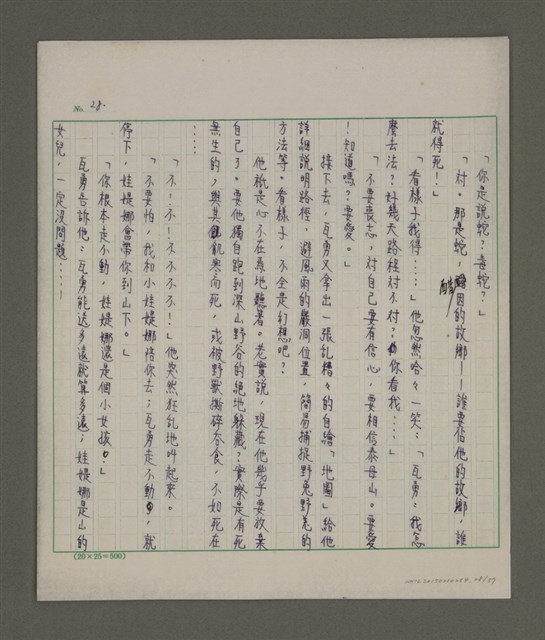 No. 28.
「你是說蛇?毒蛇?」
「对。那是蛇,酷因的故鄉——誰要佔他的故鄉,誰
就得死!」
「看樣子我得:…」他忽然哈々一笑:「瓦勇:我怎
麼去法?好幾天路程对不对?你看我:…」
「不要喪志,对自己要有信心,要相信泰母山。要愛
!知道嗎?要愛。」
接下去,瓦勇又拿出一張乱糟々的自繪「地圖」給他
詳細說明路徑,避風雨的巖洞位置,簡易捕捉野兎野羌的
方法等。看樣子,不全是幻想吧?
他祇是心不在焉地聽著。老實說,現在他幾乎要放棄
自己了。要他獨自跑到深山野谷的絶地躲藏?實際是有死
無生的,與其飢寒而死,或被野獸撕碎吞食,不如死在
……
「不!不!不不不不!」他突然狂乱地叫起來。
「不要怕,我和小娃媞娜陪你去;瓦勇走不動,就
停下,娃媞娜會帶你到山下。」
「你根本走不動,娃媞娜還是個小女孩!」
瓦勇告訴他:瓦勇能送多遠就算多遠;娃媞娜是山的
女兒,一定沒問題:…!
(20×25=500)